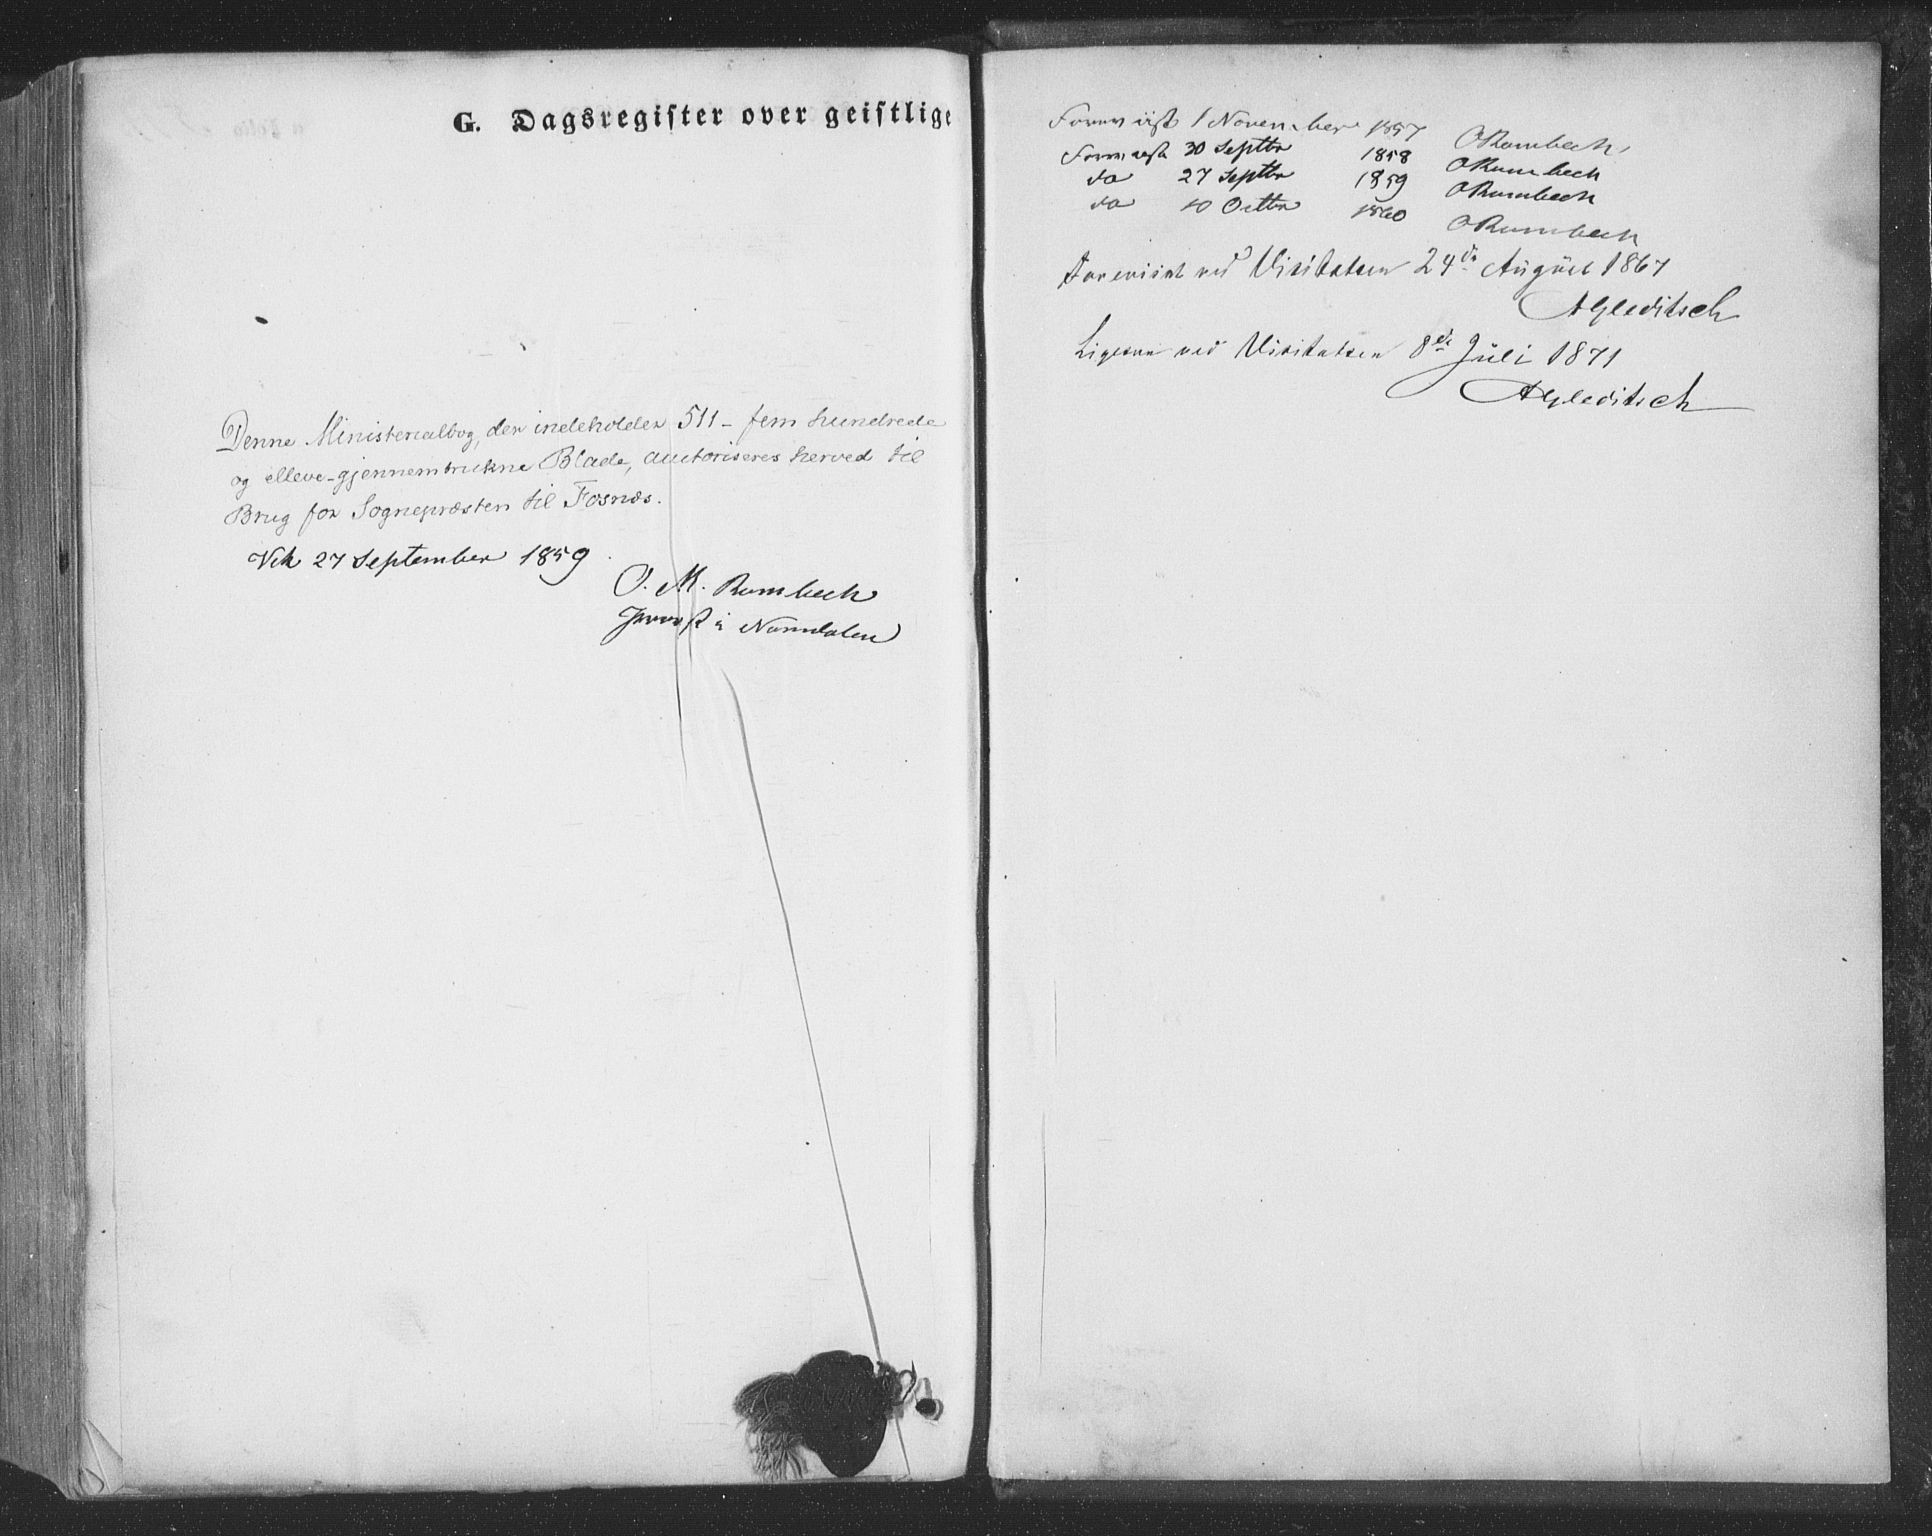 G. Dagsregister over geistlige
Denne Ministerialbog, der indeholder 511 - fem hundrede
og elleve - gjennemtrukne Blade, auctoriseres herved til
Brug for Sognepræsten til Fosnæs.
Vik 27 September 1859
O. M. Rumbech
Provst i Namdalen
Foreviist 1 November 1857 ORumbech,
Forevist 30 Septbr 1858 ORumbech
do 27 Septbr 1859 ORumbech
do 10 Octbr 1860 ORumbech
Foreviist ved Visitatsen 24de August 1867
AGleditsch
Ligesaa ved Visitatsen 8de Juli 1871
AGleditsch